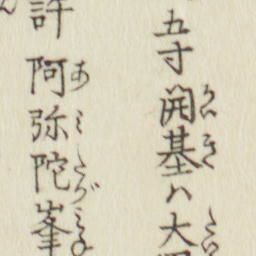 五寸開基ハ大
許阿弥陀峯